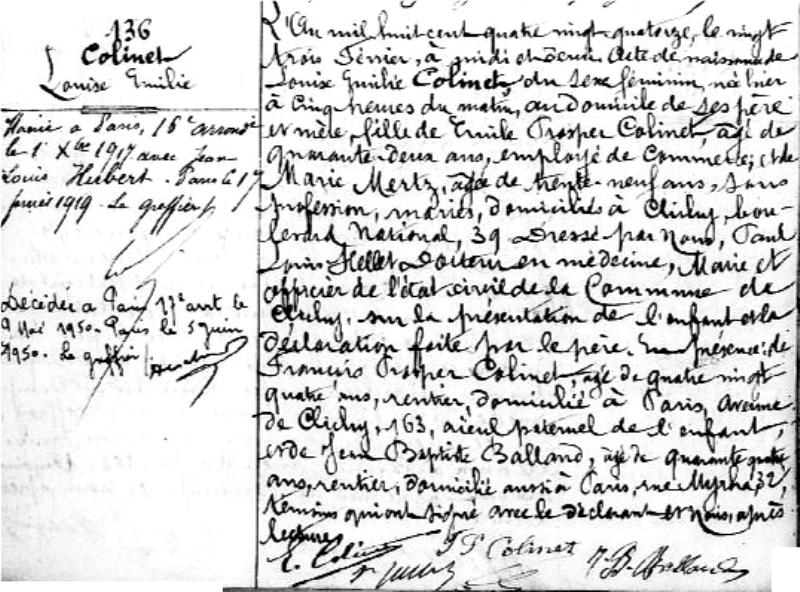 136
Colinet
Louise Emilie
Mariée à Paris, 16e arrondt
le 1er Xbre 1917 avec Jean
Louis Hubert. Paris le 17
janvier 1919. Le greffier
Décédée à Paris 17e arrt le
9 Mai 1950. Paris le 5 juin
1950. Le greffier
L'An mil huit cent quatre vingt quatorze, le vingt
trois Février, à midi et demi Acte de naissance de
Louise Emilie Colinet, du sexe féminin, née hier
à cinq heures du matin, au domicile de ses père
et mère, fille de Emile Prosper Colinet, âgé de
quarante-deux ans, employé de Commerce; et de
Marie Mertz, âgée de trente-neuf ans, sans
profession, mariés, domiciliés à Clichy, bou-
levard National, 39 Dressé par Nous, Paul
Louis Hellet Docteur en médecine, Maire et
officier de l'état civil de la Commune de
Clichy. sur la présentation de l'enfant et la
déclaration faite par le père. En présence: de
Francois Prosper Colinet, âgé de quatre vingt
quatre ans, rentier, domicilié à Paris, avenue
de Clichy, 163, aïeul paternel de l'enfant,
et de Jean Baptiste Balland, âgé de quarante quatre
ans, rentier, domicilié aussi à Paris, rue Myrha, 32,
témoins qui ont signé avec le déclarant et Nous, après
lecture.
E. Colinet
F P Colinet
J. B. Balland